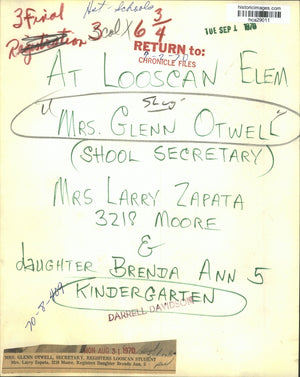 historicimages.com
hca29011
Hst - Schools
3 Final
Registration
3col X 6 3/4
TUE SEP 1 1970
RETURN to:
CHRONICLE FILES
AT LOOSCAN ELEM
SLUG
"MRS. GLENN OTWELL"
(SHOOL SECRETARY)
MRS LARRY ZAPATA
3218 MOORE
&
daughter BRENDA ANN 5
KINDERGARTEN
DARRELL DAVIDSON
MON AUG 31 1970
MRS. GLENN OTWELL, SECRETARY, REGISTERS LOOSCAN STUDENT
Mrs. Larry Zapata, 3218 Moore, Registers Daughter Brenda Ann, 5